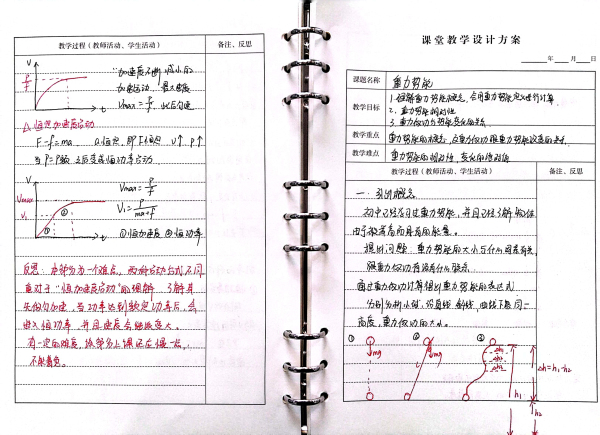 教学过程（教师活动、学生活动）
备注、反思
V
t
加速度不断减小的
加速运动，最大速度
Vmax = P/f，此后匀速
△ 恒定加速度启动
F-f=ma
a恒定，即F恒定，V↑ P↑
当P=P额 之后变成恒功率启动
V
Vmax
V₁
①
②
t
Vmax = P/f
V₁ = P/(ma+f)
①恒加速度 ②恒功率
反思：本部分为一个难点，两种启动方式不同
重对于“恒加速度启动”的理解，了解其
先做匀加速，当功率达到额定功率后，会
进入恒功率，并且速度会继续变大。
有一定的难度，该部分上课还应慢一点，
不能着急。
课堂教学设计方案
年 月 日
课题名称
重力势能
教学目标
1.理解重力势能概念，会用重力势能定义进行计算
2.重力势能的相对性
3.重力做功与势能变化的关系
教学重点
重力势能的概念，会重力做功跟重力势能改变的关系
教学难点
重力势能的相对性，变化的绝对性
教学过程（教师活动、学生活动）
备注、反思
一. 引出概念
初中已经学习过重力势能，并且已经了解物体
由于被举高而具有的能量。
提出问题：重力势能的大小与什么因素有关，
跟重力做功有没有什么联系
通过重力做功计算得到重力势能的表达式
分别分析小球，沿直线，斜线，曲线下落同一
高度，重力做功的大小。
①
②
③
mg
mg
l
Δh
Δh
Δh
h₁
h₂
Δh=h₁-h₂